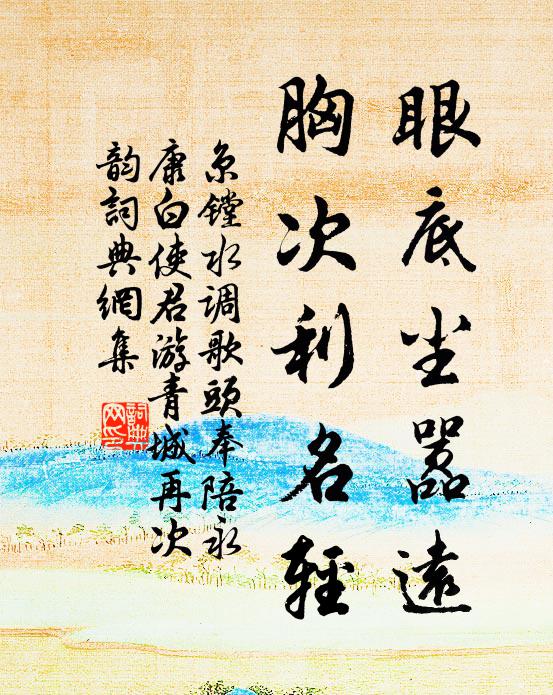 眼底尘嚣遠
胸次利名輕
京镗水调歌頭奉陪永
康白使君游青城再次
韵詞典網集
詞典
网印